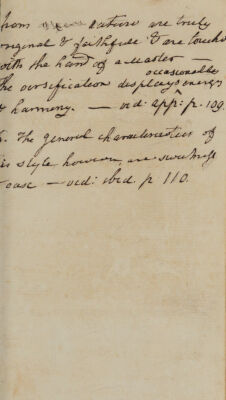 from nature are truly
original & faithful & are touch
with the hand of a Master —
occasionable
the versification displays energy
& harmony. — vid: app: p. 109
The general characteristics of
his style however, are sweetness
ease — vid: ibid. p 110.